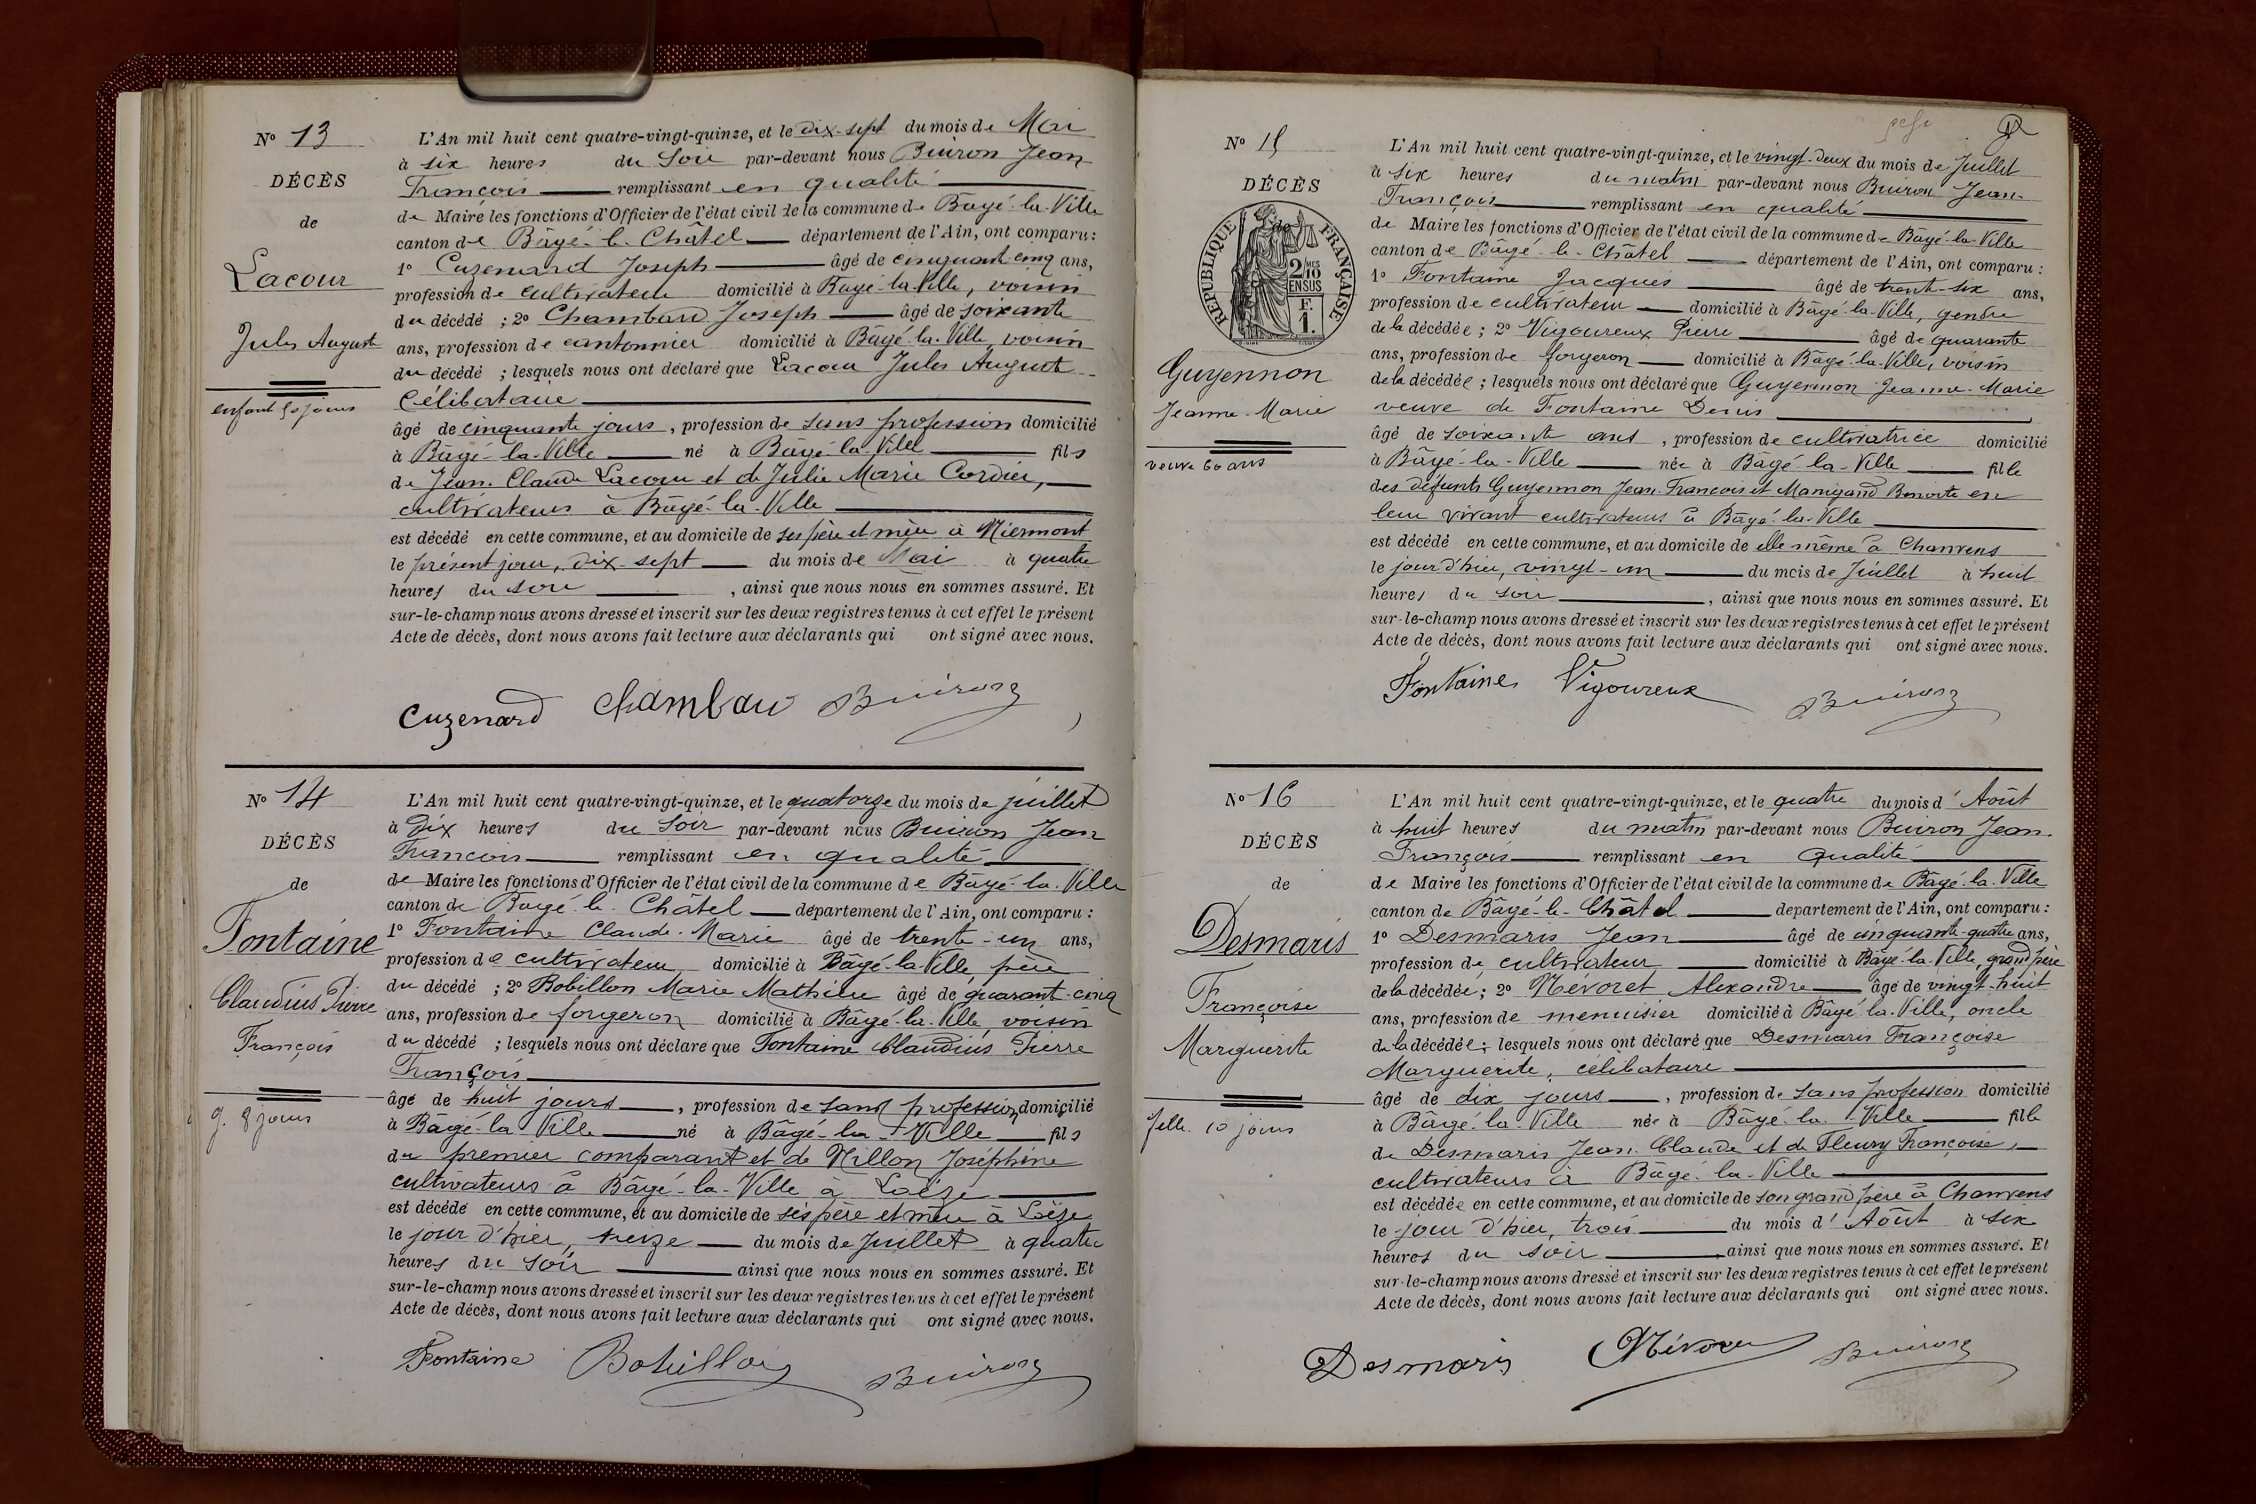 N° 13
DÉCÈS
de
Lacour
Jules August
enfant 50 jours
L'An mil huit cent quatre-vingt-quinze, et le dix-sept du mois de Mai
à six heures du Soir par-devant nous Buiron Jean
François remplissant en qualité
de Maire les fonctions d'Officier de l'état civil de la commune de Bâgé-la-Ville
canton de Bâgé-le-Châtel département de l'Ain, ont comparu:
1° Cuzenard Joseph âgé de cinquant cinq ans,
profession de cultivateur domicilié à Bâgé-la-Ville, voisin
du décédé ; 2° Chambau Joseph âgé de soixante
ans, profession de cantonnier domicilié à Bâgé-la-Ville, voisin
du décédé ; lesquels nous ont déclaré que Lacour Jules August
Célibataire
âgé de cinquante jours, profession de sans profession domicilié
à Bâgé-la-Ville né à Bâgé-la-Ville fils
de Jean-Claude Lacour et de Julie Marie Cordier,
cultivateurs à Bâgé-la-Ville
est décédé en cette commune, et au domicile de ses père et mère à Niermont
le présent jour, dix-sept du mois de Mai à quatre
heures du soir , ainsi que nous nous en sommes assuré. Et
sur-le-champ nous avons dressé et inscrit sur les deux registres tenus à cet effet le présent
Acte de décès, dont nous avons fait lecture aux déclarants qui ont signé avec nous.
Cuzenard Chambau Buiron
N° 14
DÉCÈS
de
Fontaine
Claudius Pierre
François
g. 8 jours
L'An mil huit cent quatre-vingt-quinze, et le quatorze du mois de juillet
à Dix heures du Soir par-devant nous Buiron Jean
François remplissant en qualité
de Maire les fonctions d'Officier de l'état civil de la commune de Bâgé-la-Ville
canton de Bâgé-le-Châtel département de l'Ain, ont comparu :
1° Fontaine Claude-Marie âgé de trente-un ans,
profession de cultivateur domicilié à Bâgé-la-Ville, père
du décédé ; 2° Bobillon Marie Mathieu âgé de quarant-cinq
ans, profession de forgeron domicilié à Bâgé-la-Ville, voisin
du décédé ; lesquels nous ont déclaré que Fontaine Claudius Pierre
François
âgé de huit jours , profession de sans profession domicilié
à Bâgé-la-Ville né à Bâgé-la-Ville fils
du premier comparant et de Nillon Joséphine
cultivateurs à Bâgé-la-Ville à Loëze
est décédé en cette commune, et au domicile de ses père et mère à Loëze
le jour d'hier, treize du mois de Juillet à quatre
heures du soir ainsi que nous nous en sommes assuré. Et
sur-le-champ nous avons dressé et inscrit sur les deux registres tenus à cet effet le présent
Acte de décès, dont nous avons fait lecture aux déclarants qui ont signé avec nous.
Fontaine Bobillon Buiron
N° 15
DÉCÈS
RÉPUBLIQUE FRANÇAISE
2/10 MES
EN SUS
F.
1.
Guyennon
Jeanne-Marie
veuve 60 ans
L'An mil huit cent quatre-vingt-quinze, et le vingt-deux du mois de Juillet
à six heures du matin par-devant nous Buiron Jean-
François remplissant en qualité
de Maire les fonctions d'Officier de l'état civil de la commune de Bâgé-la-Ville
canton de Bâgé-le-Châtel département de l'Ain, ont comparu :
1° Fontaine Jacques âgé de trent-six ans,
profession de cultivateur domicilié à Bâgé-la-Ville, gendre
de la décédée ; 2° Vigoureux Pierre âgé de quarante
ans, profession de forgeron domicilié à Bâgé-la-Ville, voisin
de la décédée ; lesquels nous ont déclaré que Guyennon Jeanne-Marie
veuve de Fontaine Denis
âgé de soixante ans , profession de cultivatrice domicilié
à Bâgé-la-Ville née à Bâgé-la-Ville fille
des défunts Guyennon Jean-François et Manigand Benoite en
leur vivant cultivateurs à Bâgé-la-Ville
est décédé en cette commune, et au domicile de elle même à Chanvens
le jour d'hier, vingt-un du mois de Juillet à huit
heures du soir , ainsi que nous nous en sommes assuré. Et
sur-le-champ nous avons dressé et inscrit sur les deux registres tenus à cet effet le présent
Acte de décès, dont nous avons fait lecture aux déclarants qui ont signé avec nous.
Fontaine Vigoureux Buiron
N° 16
DÉCÈS
de
Desmaris
Françoise
Marguerite
felle 10 jours
L'An mil huit cent quatre-vingt-quinze, et le quatre du mois d'Août
à huit heures du matin par-devant nous Buiron Jean-
François remplissant en qualité
de Maire les fonctions d'Officier de l'état civil de la commune de Bâgé-la-Ville
canton de Bâgé-le-Châtel département de l'Ain, ont comparu :
1° Desmaris Jean âgé de cinquante-quatre ans,
profession de cultivateur domicilié à Bâgé-la-Ville, grand père
de la décédée ; 2° Névoret Alexandre âgé de vingt-huit
ans, profession de menuisier domicilié à Bâgé-la-Ville, oncle
de la décédée ; lesquels nous ont déclaré que Desmaris Françoise
Marguerite, célibataire
âgé de dix jours , profession de sans profession domicilié
à Bâgé-la-Ville née à Bâgé-la-Ville fille
de Desmaris Jean-Claude et de Fleury Françoise,
cultivateurs à Bâgé-la-Ville
est décédée en cette commune, et au domicile de son grand père à Chanvens
le jour d'hier, trois du mois d'Août à six
heures du soir ainsi que nous nous en sommes assuré. Et
sur-le-champ nous avons dressé et inscrit sur les deux registres tenus à cet effet le présent
Acte de décès, dont nous avons fait lecture aux déclarants qui ont signé avec nous.
Desmaris Névoret Buiron